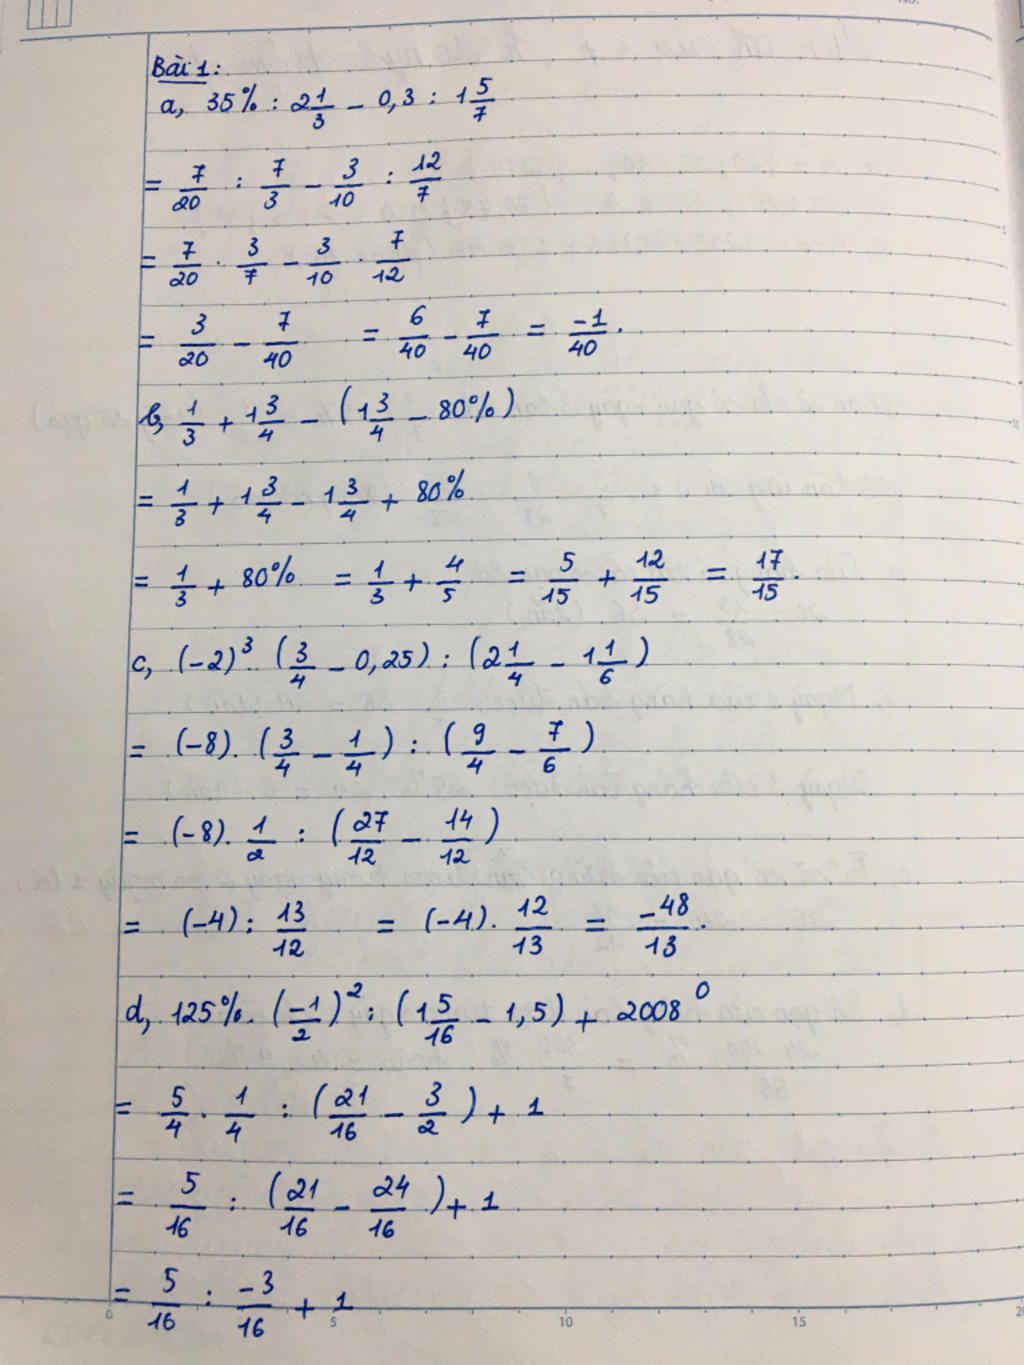 Bài 1:
a, 35% : 2 1/3 - 0,3 : 1 5/7
= 7/20 : 7/3 - 3/10 : 12/7
= 7/20 . 3/7 - 3/10 . 7/12
= 3/20 - 7/40 = 6/40 - 7/40 = -1/40.
b, 1/3 + 1 3/4 - (1 3/4 - 80%)
= 1/3 + 1 3/4 - 1 3/4 + 80%
= 1/3 + 80% = 1/3 + 4/5 = 5/15 + 12/15 = 17/15.
c, (-2)³. (3/4 - 0,25) : (2 1/4 - 1 1/6)
= (-8). (3/4 - 1/4) : (9/4 - 7/6)
= (-8). 1/2 : (27/12 - 14/12)
= (-4) : 13/12 = (-4). 12/13 = -48/13.
d, 125%. (-1/2)² : (1 5/16 - 1,5) + 2008⁰
= 5/4 . 1/4 : (21/16 - 3/2) + 1
= 5/16 : (21/16 - 24/16) + 1
= 5/16 : -3/16 + 1
0 5 10 15